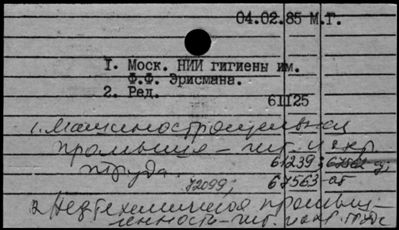 04.02.85 М.Г.
1. Моск. НИИ гигиены им.
Ф.Ф. Эрисмана.
2. Ред.
61125
1. Машиностроительная
промышл-
труда. 61239
72099; 67563-аб
2. Нефтехимическая промыш-
ленность-гиг. и охр. труда